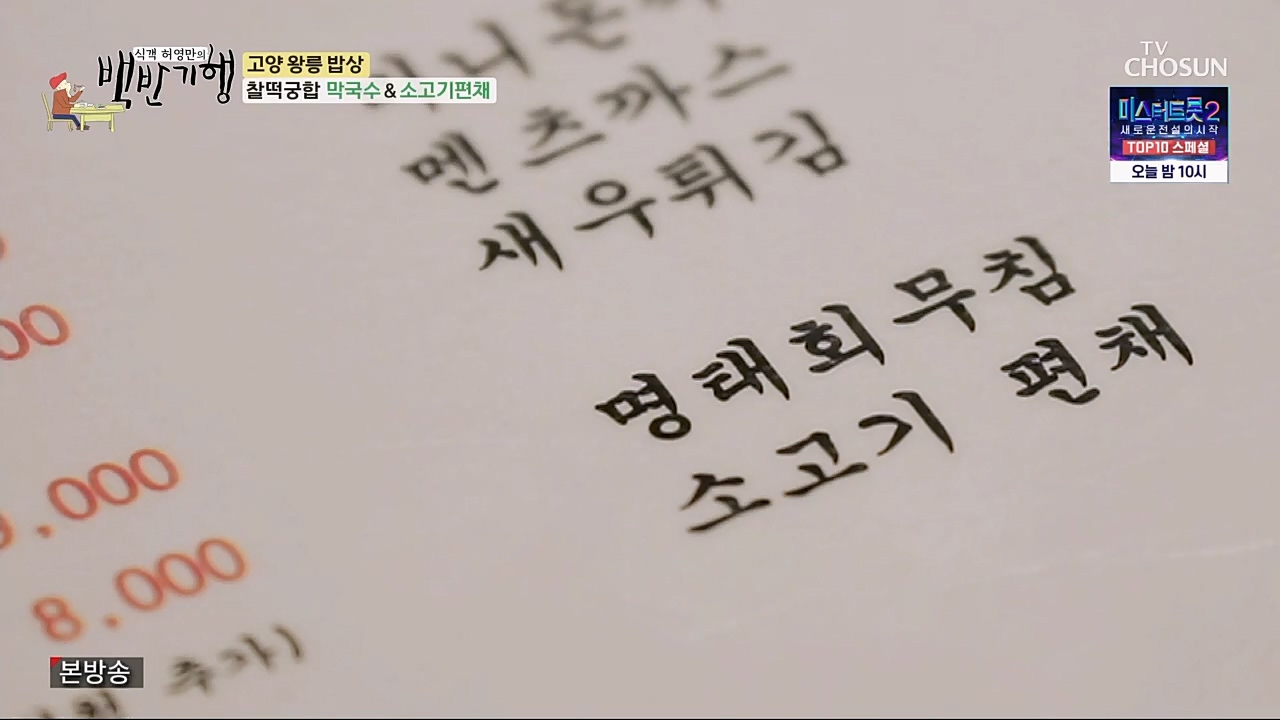 식객 허영만의
백반기행
고양 왕릉 밥상
찰떡궁합 막국수 & 소고기편채
TV
CHOSUN
미스터트롯2
새로운전설의시작
TOP10 스페셜
오늘 밤 10시
멘츠까스
새우튀김
명태회무침
소고기 편채
00
.000
8.000
추가)
본방송